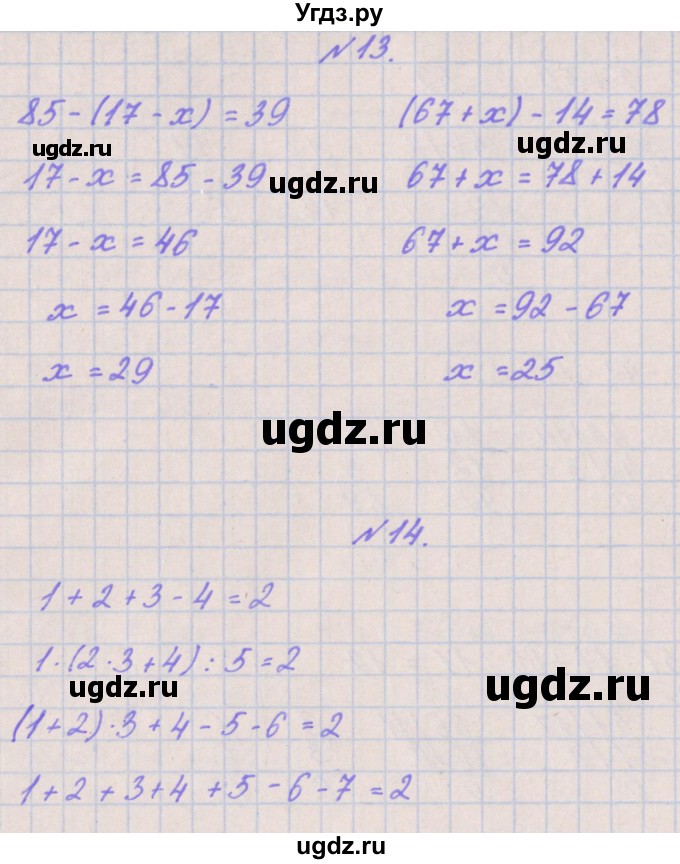 Угдз.ру
№13.
85 - (17 - x) = 39
17 - x = 85 - 39
17 - x = 46
x = 46 - 17
x = 29
(67 + x) - 14 = 78
67 + x = 78 + 14
67 + x = 92
x = 92 - 67
x = 25
ugdz.ru
ugdz.ru
ugdz.ru
ugdz.ru
№14.
1 + 2 + 3 - 4 = 2
1 · (2 · 3 + 4) : 5 = 2
(1 + 2) · 3 + 4 - 5 - 6 = 2
1 + 2 + 3 + 4 + 5 - 6 - 7 = 2
ugdz.ru
ugdz.ru
ugdz.ru